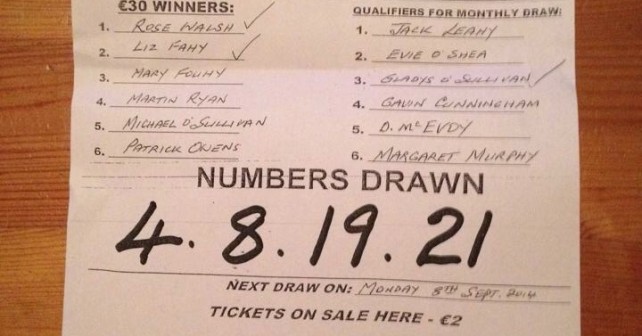 €30 WINNERS:
1. ROSE WALSH
2. LIZ FAHY
3. MARY FOUHY
4. MARTIN RYAN
5. MICHAEL O'SULLIVAN
6. PATRICK OWENS
QUALIFIERS FOR MONTHLY DRAW:
1. JACK LEAHY
2. EVIE O'SHEA
3. GLADYS O'SULLIVAN
4. GAVIN CUNNINGHAM
5. D. McEVOY
6. MARGARET MURPHY
NUMBERS DRAWN
4. 8. 19. 21
NEXT DRAW ON: MONDAY 8TH SEPT. 2014
TICKETS ON SALE HERE - €2